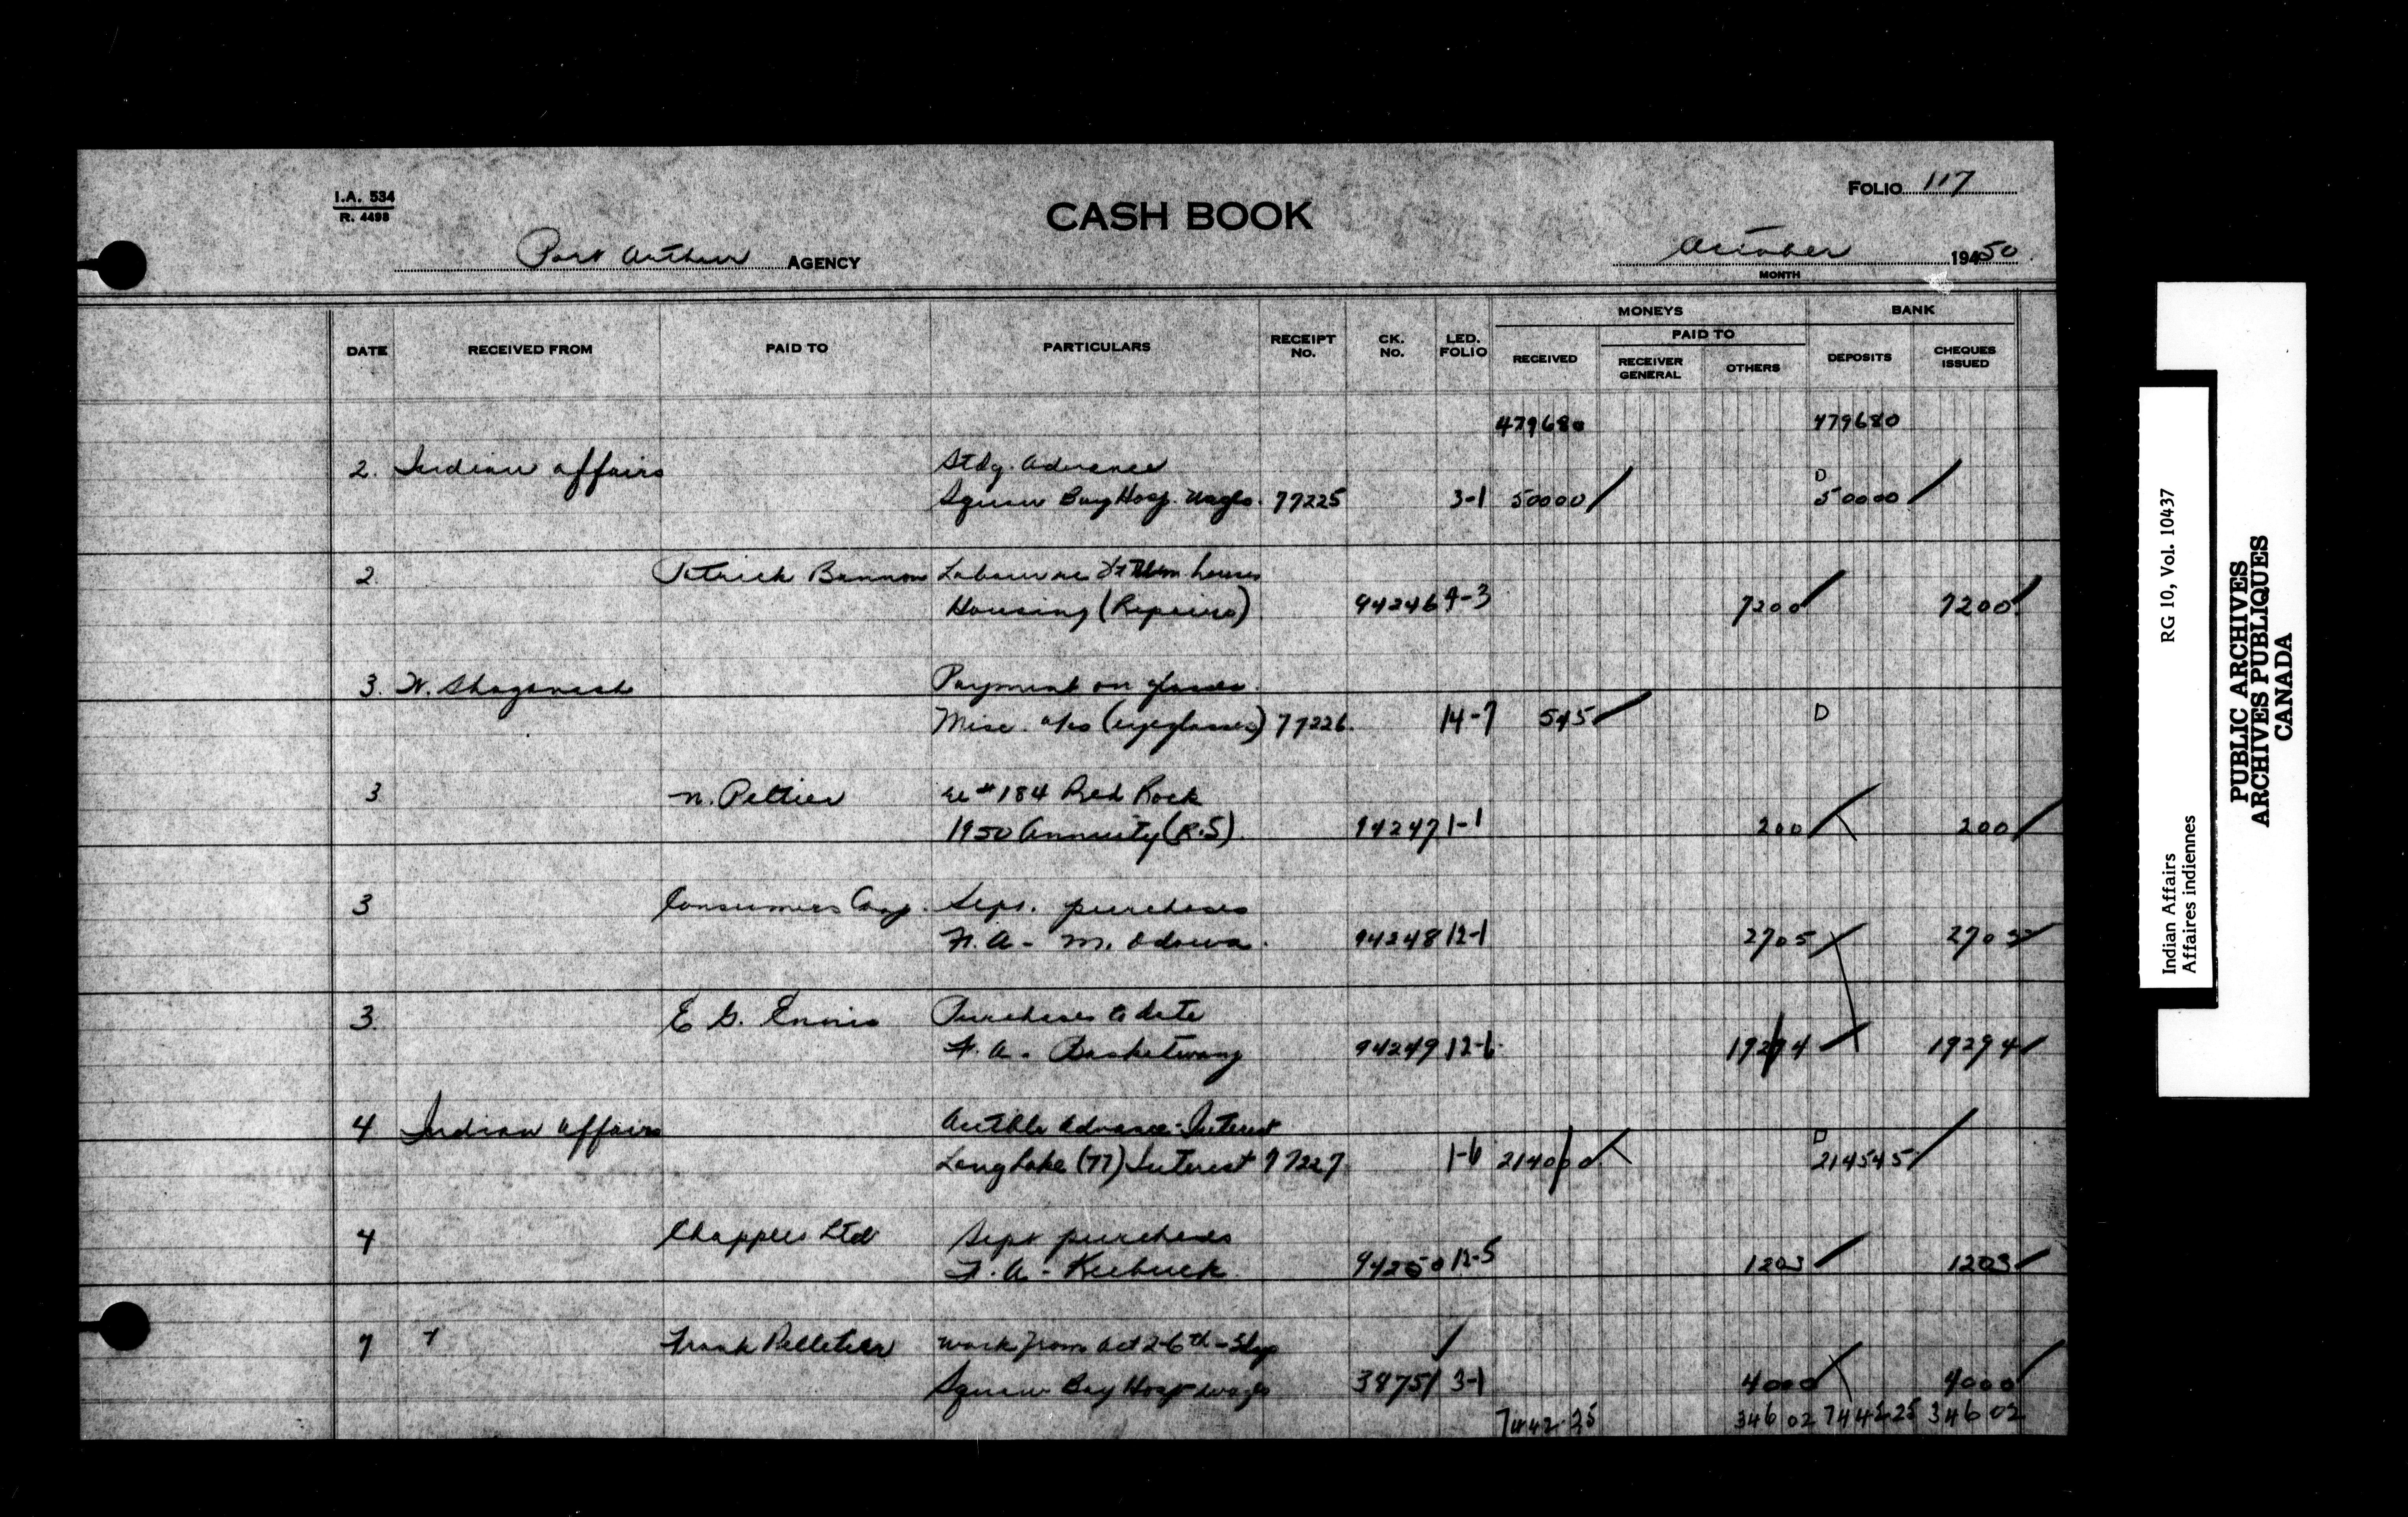 I.A. 534
R. 4498
CASH BOOK
FOLIO 117
Port Arthur AGENCY
October 1950
MONTH
DATE RECEIVED FROM PAID TO PARTICULARS RECEIPT NO. CK. NO. LED. FOLIO MONEYS RECEIVED PAID TO RECEIVER GENERAL OTHERS BANK DEPOSITS CHEQUES ISSUED
479680 479680
2. Indian Affairs Stdg. Advance D
Squaw Bay Hosp. Wages. 77225 3-1 50000 50000
2. Patrick Bannon Labour on houses
Housing (Repairs) 94246 9-3 7200 7200
3. W. Shaganash Payment on glasses.
Misc. a/cs (eyeglasses) 77226. 14-7 545 D
3 N. Peltier re #184 Red Rock
1950 Annuity (R.S) 94247 1-1 200 200
3 Consumers Coop. Sept. purchases
F.A - M. Odawa. 94248 12-1 2705 2705
3 E G. Ennis Purchases to date
F.A. - Basketwang 94249 12-6 19294 19294
4 Indian Affairs Actble Advance - Interest D
Long Lake (77) Interest 77227 1-6 214000 214545
4 Chapples Ltd Sept purchases
F.A - Keebuck 94250 12-5 1203 1203
7 Frank Pelletier Work from Oct 2-6th -
Squaw Bay Hosp Wages 38751 3-1 4000 4000
7442.25 346 02 7442 25 346 02
Indian Affairs RG 10, Vol. 10437
Affaires indiennes
PUBLIC ARCHIVES
ARCHIVES PUBLIQUES
CANADA